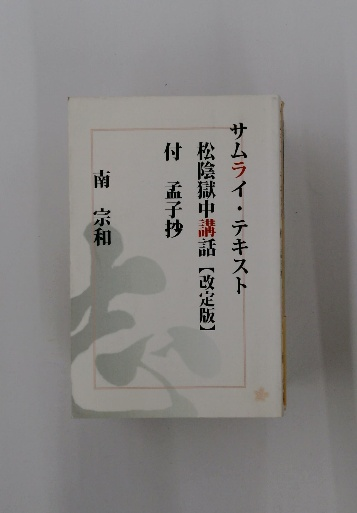 サムライ・テキスト
松陰獄中講話【改定版】
付 孟子抄
南 宗和
志